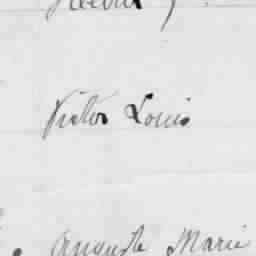 Victor Louis
Auguste Marie